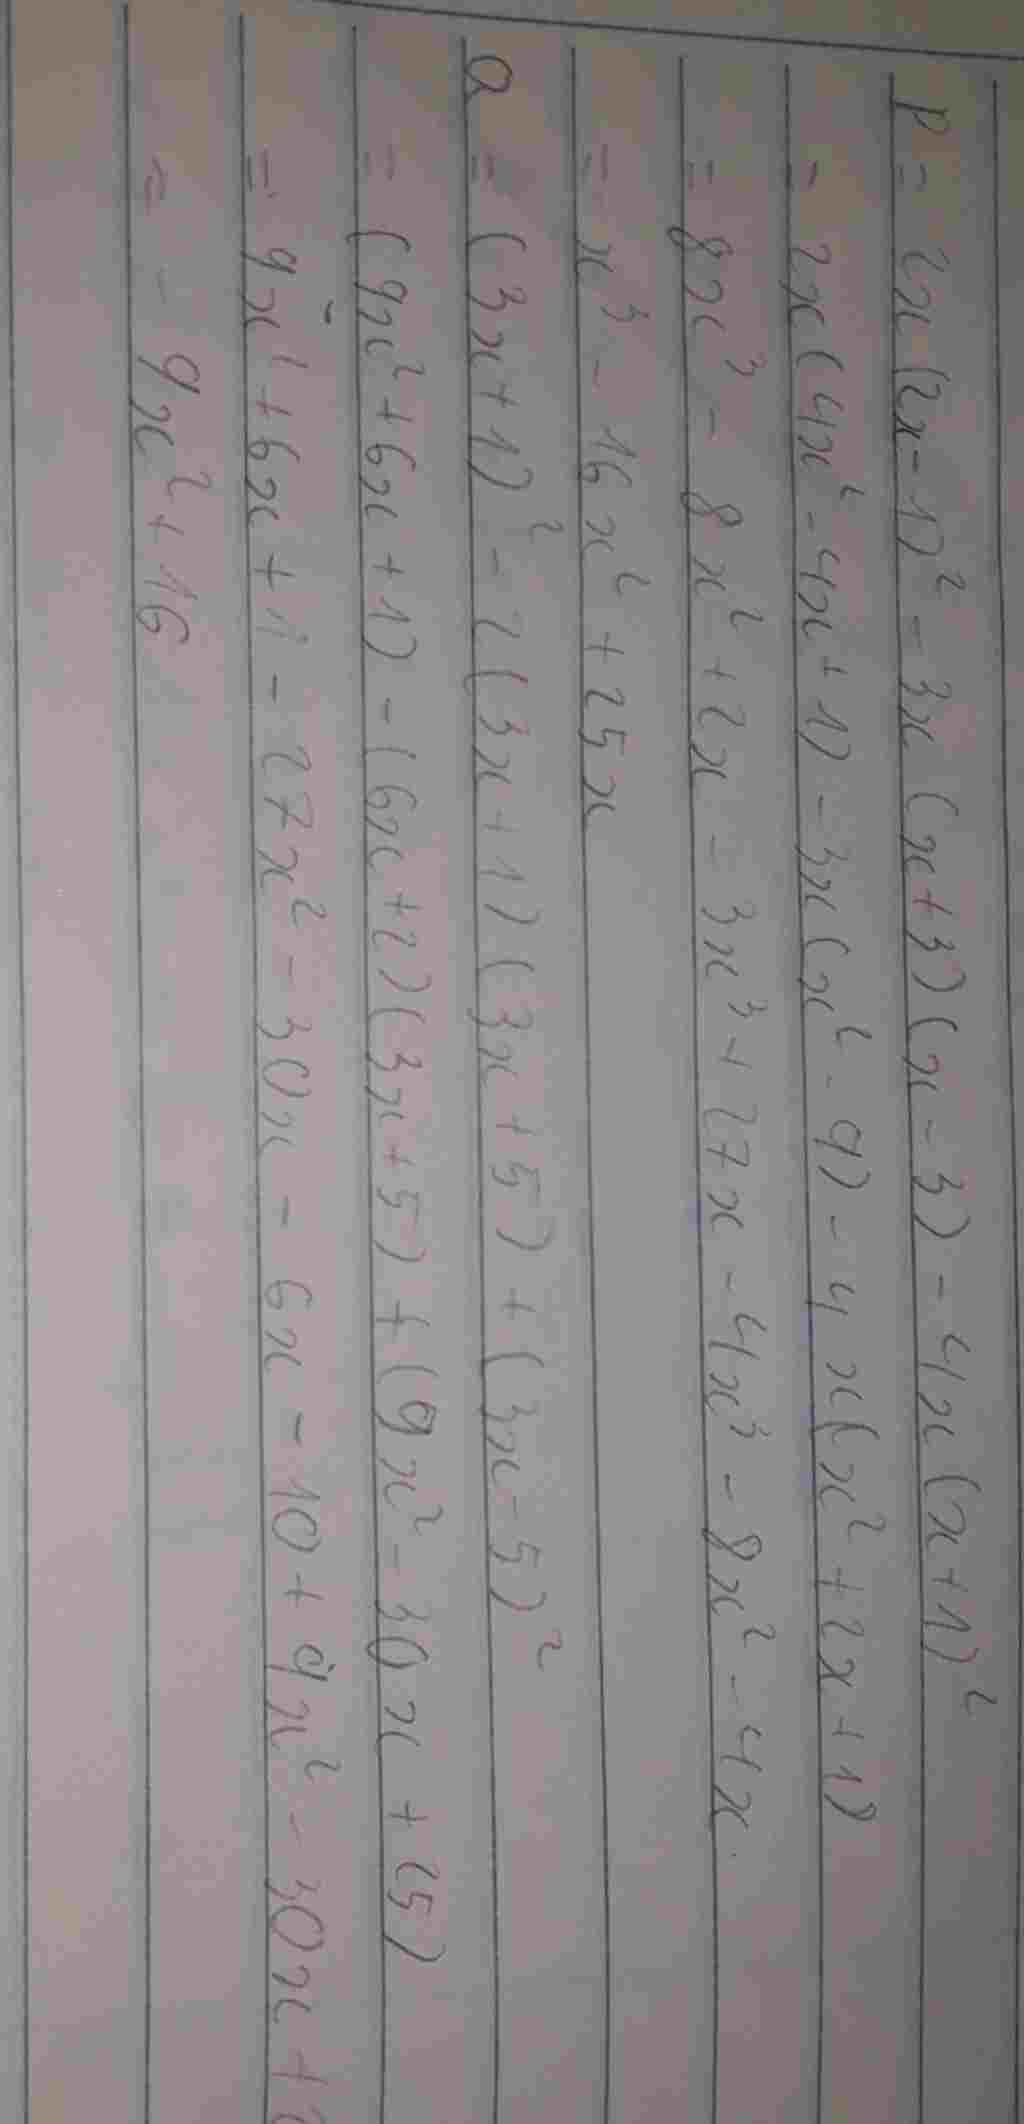 P = 2x(2x-1)² - 3x(x+3)(x-3) - 4x(x+1)²
= 2x(4x²-4x+1) - 3x(x²-9) - 4x(x²+2x+1)
= 8x³ - 8x² + 2x - 3x³ + 27x - 4x³ - 8x² - 4x
= x³ - 16x² + 25x
Q = (3x+1)² - 2(3x+1)(3x+5) + (3x-5)²
= (9x²+6x+1) - (6x+2)(3x+5) + (9x²-30x+25)
= 9x²+6x+1 - 27x² - 30x - 6x - 10 + 9x² - 30x +
= - 9x² + 16